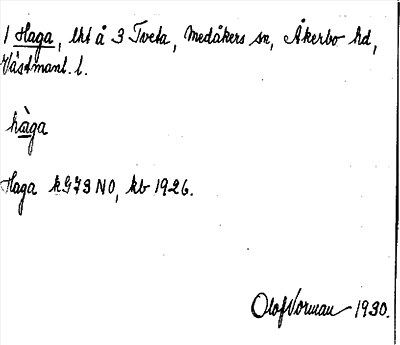 1 Haga, lht å 3 Tveta, Medåkers sn, Åkerbo hd,
Västmanl. l.
hàga
Haga kG73NO, kb 1926.
Olof Vorman 1930.